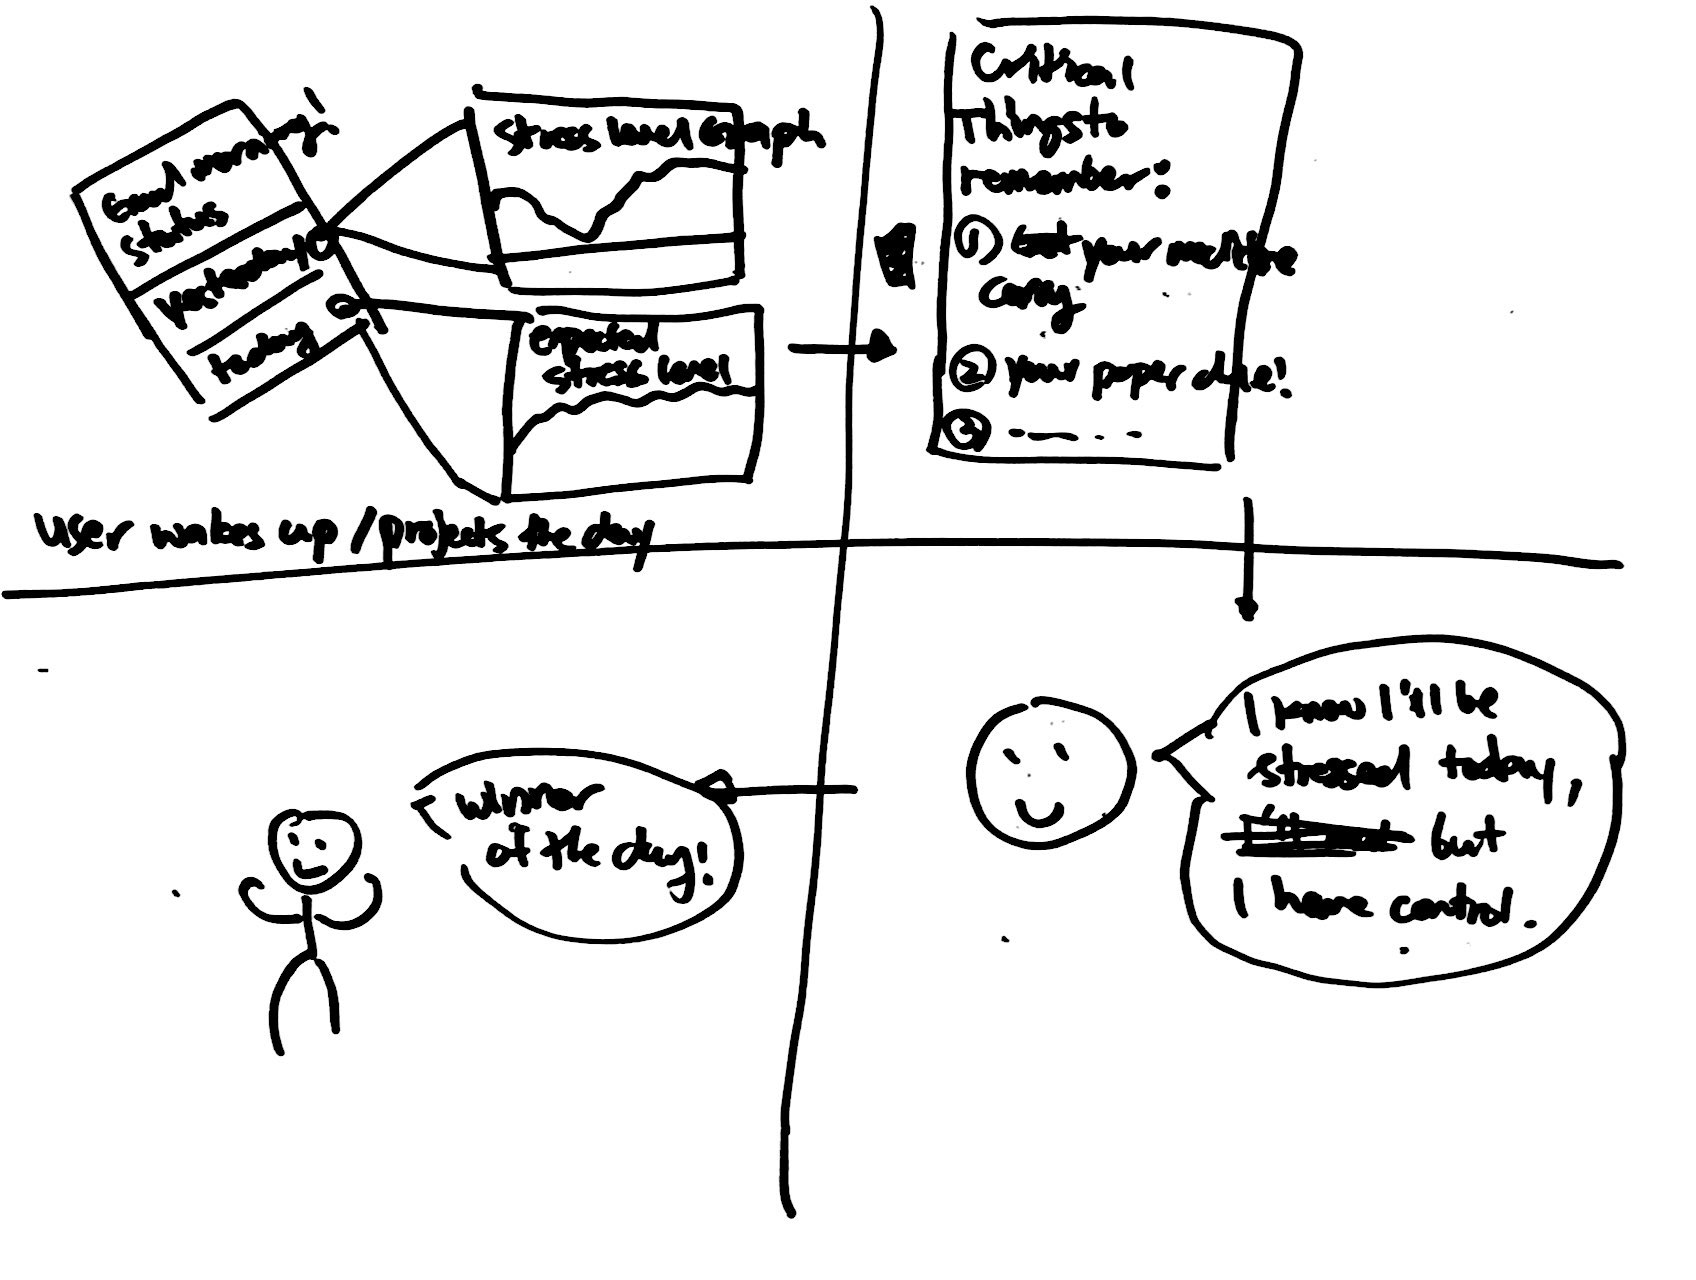 Good morning!
status
yesterday
today
stress level Graph
expected
stress level
User wakes up / projects the day
Critical
Things to
remember:
① your
carry
② your paper due!
③
I know I'll be
stressed today,
but
I have control.
winner
of the day!